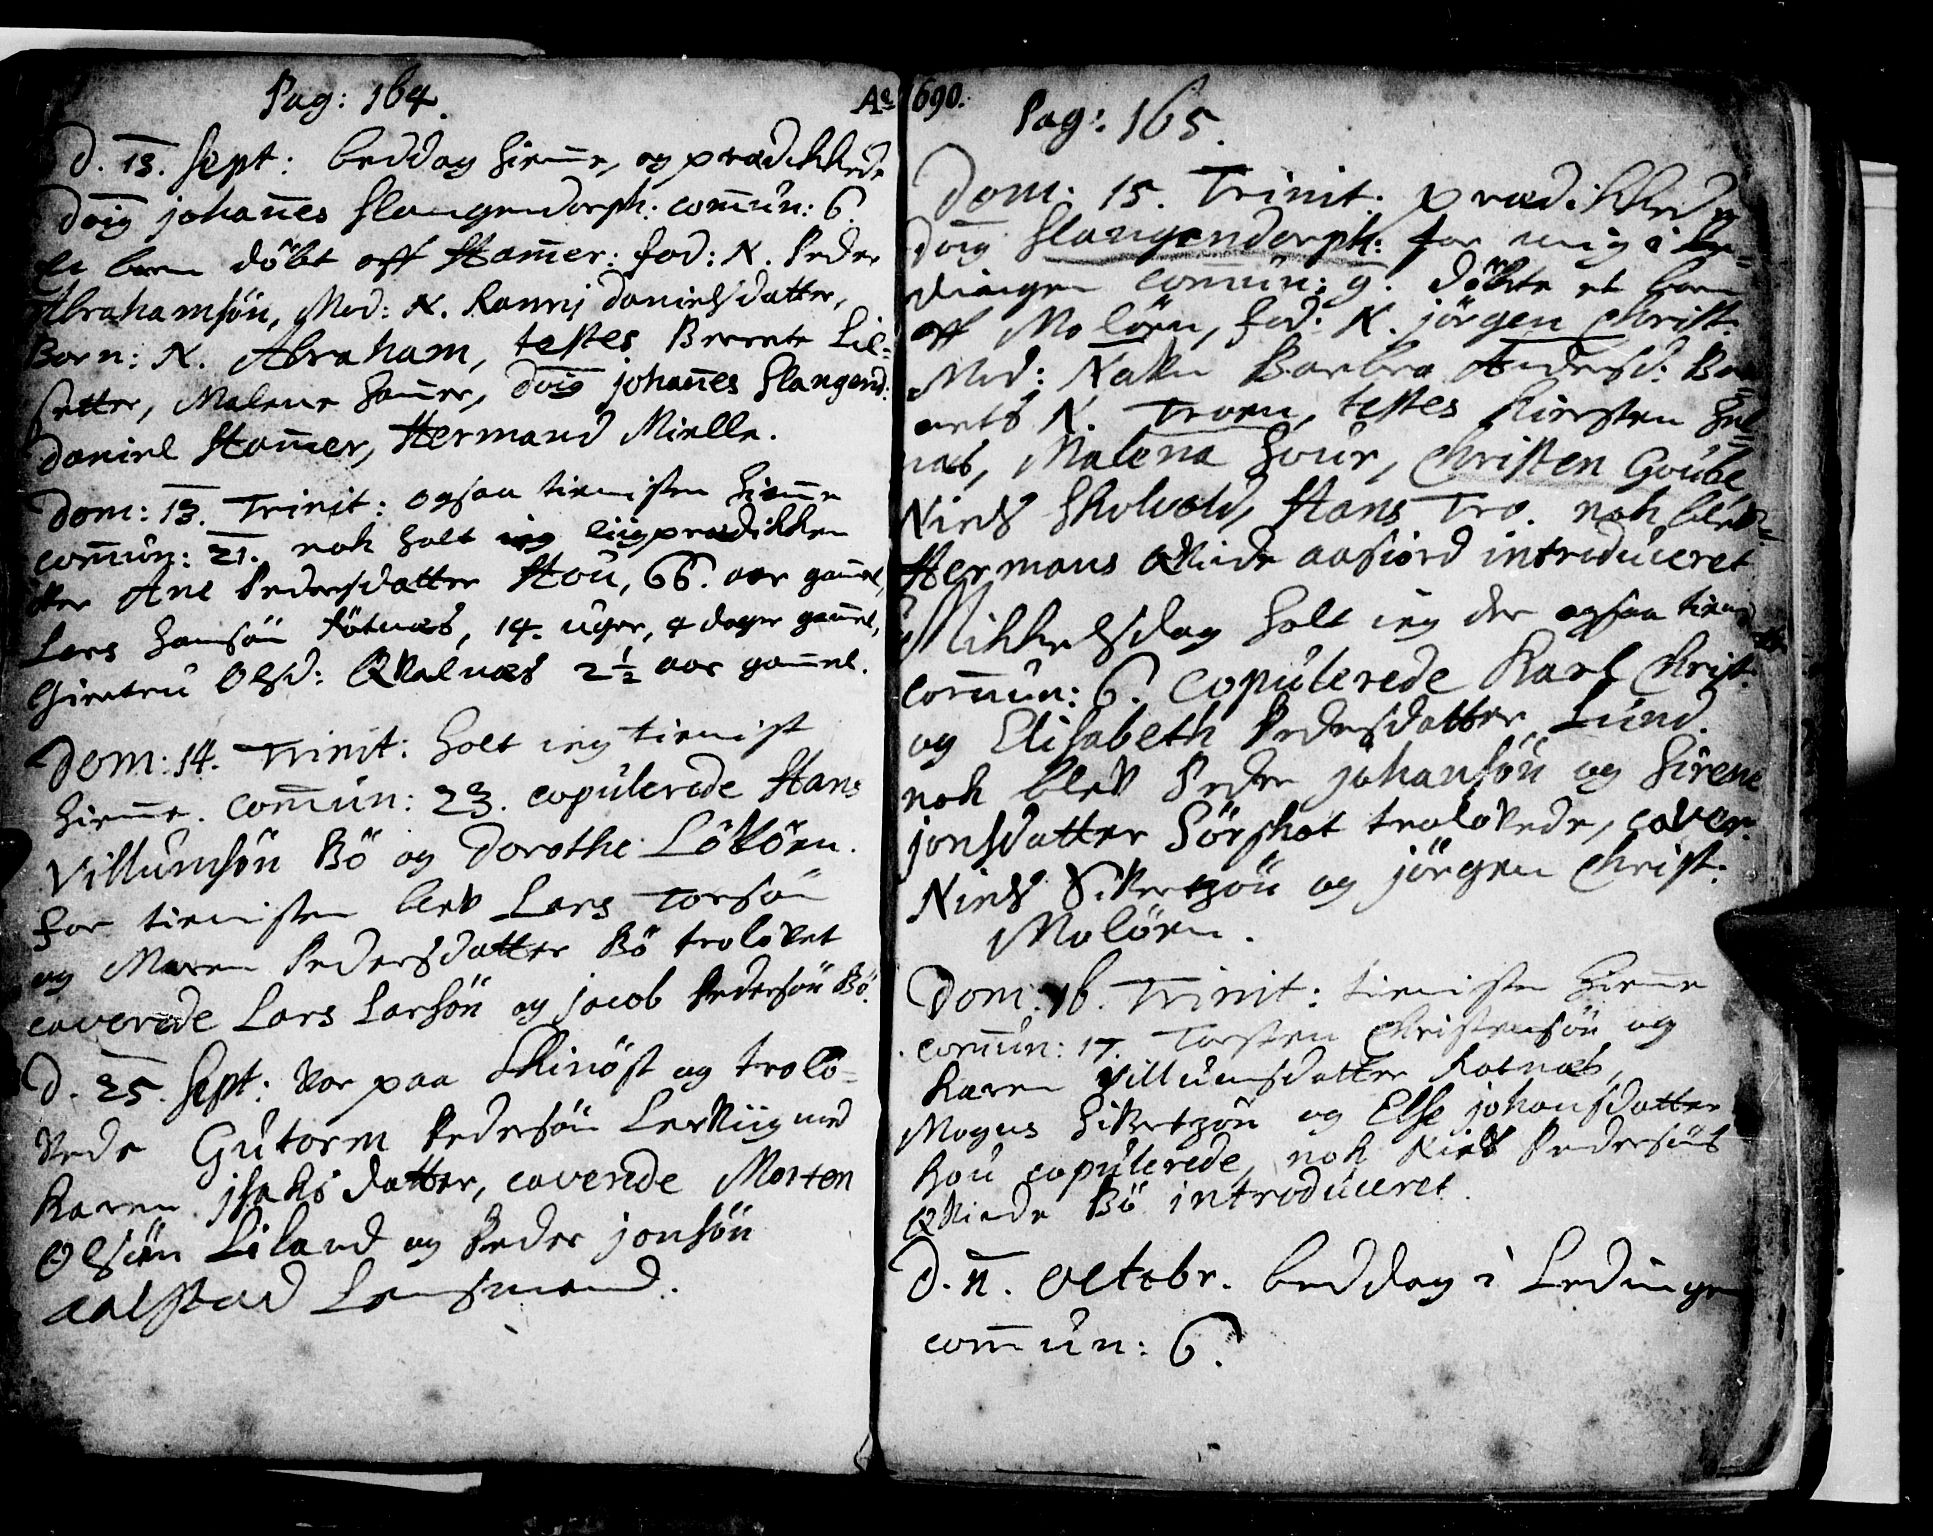 Pag: 164.
D. 13. Sept: beddag hieme, og prædikkede
Dnig johanes Slangendorph: comun: 6.
Et barn döbt aff Hamer: fad: N. Peder
Abrahamsön, Mod: N. Ranni danielsdatter,
Barn: N. Abraham, testes Berrete Lil-
setter, Malene Hamer, dnig johanes Slangend:
Daniel Hamer, Hermand Mielle.
Dom: 13. Trinit: ogsaa tienisten hieme
comun: 21. nok holt ieg liigprædikken
offver Ane Pedersdatter Hou, 66. aar gamel,
Lars Hansön Rötnæs, 14. uger, 4 dage gamel,
Giertru Olsd: Qvalnæs 2½ aar gamel.
Dom: 14. Trinit: holt ieg tienist
hieme. Comun: 23. copulerede Hans
Villumsön Bö og Dorothe Lököen.
for tienisten blev Lars Torsön
og Maren Pedersdatter Bö trolovet
caverede Lars Larsön og jacob Pedersön Bö.
D. 25. Sept: var paa Skinöst og trolo-
vede Gutorm Pedersön Lerviig med
Karen jsaksdatter, caverede Morten
Olsön Liland og Peder jonsön
aalstad Lensmand.
Ao 1690.
Pag: 165.
Dom: 15. Trinit: prædikkede
dnig Slangendorph: for mig i Lö-
dingen comun: 9. döbte et barn
aff Molöen, fad: N. jörgen Christ:
Mod: Navn Barbra Andersd: Bar-
nets N. Troen, testes Kirsten Hul-
næs, Malena Hour, Christen Goube,
Niels Skolvold, Hans Tro. nok blev
Hermans Qvinde aafiord introduceret
Mikkelsdag holt ieg der ogsaa tienist
comun: 6. Copulerede Karl Christ:
og Elisabeth Pedersdatter Lund.
nok blev Peder johansön og Sirene
jonsdatter Sörskot trolovede, caver:
Niels Sivertzön og jörgen Christ:
Molöen.
Dom: 16. Trinit: tienisten hieme
comun: 17. Torsten Christensön og
Karen Villumsdatter Rotnæs,
Mogns Sivertzön og Else johansdatter
Hou copulerede, nok Niels Pedersöns
Qvinde Bö introduceret.
D. 11. octobr. beddag i Ledingen
comun: 6.